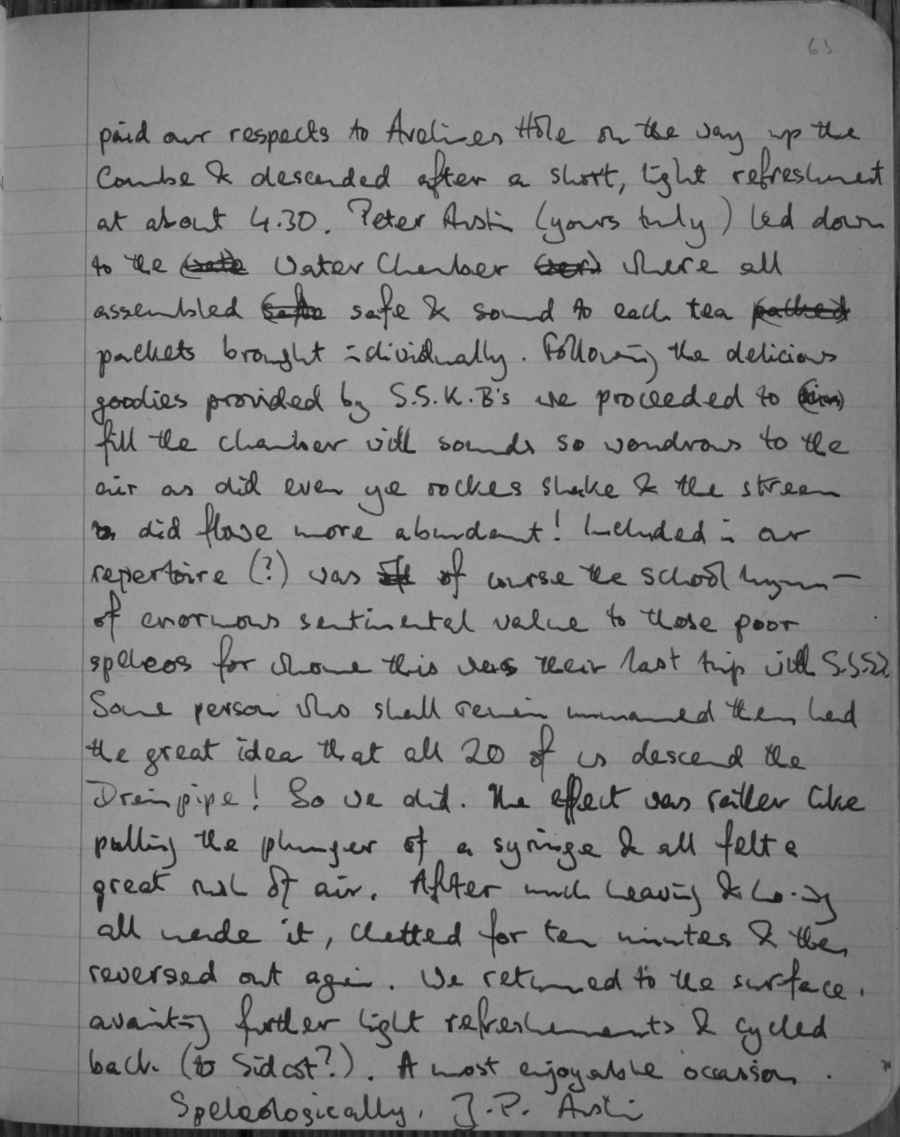 63
paid our respects to Avelines Hole on the way up the
Combe & descended after a short, light refreshment
at about 4.30. Peter Austin (yours truly) led down
to the Water Chamber where all
assembled safe & sound to each tea
packets brought individually. Following the delicious
goodies provided by S.S.K.B's we proceeded to
fill the chamber with sounds so wondrous to the
air as did even ye rockes shake & the stream
did flowe more abundant! Included in our
repertoire (?) was of course the school hymn —
of enormous sentimental value to those poor
speleos for whome this was their last trip with
Some person who shall remain unnamed then had
the great idea that all 20 of us descend the
Drainpipe! So we did. The effect was rather like
pulling the plunger of a syringe & all felt a
great rush of air. After much heaving &
all made it, chatted for ten minutes & then
reversed out again. We returned to the surface,
awaiting further light refreshments & cycled
back (to Sidcot?). A most enjoyable occasion.
Speleologically, J.P. Austin